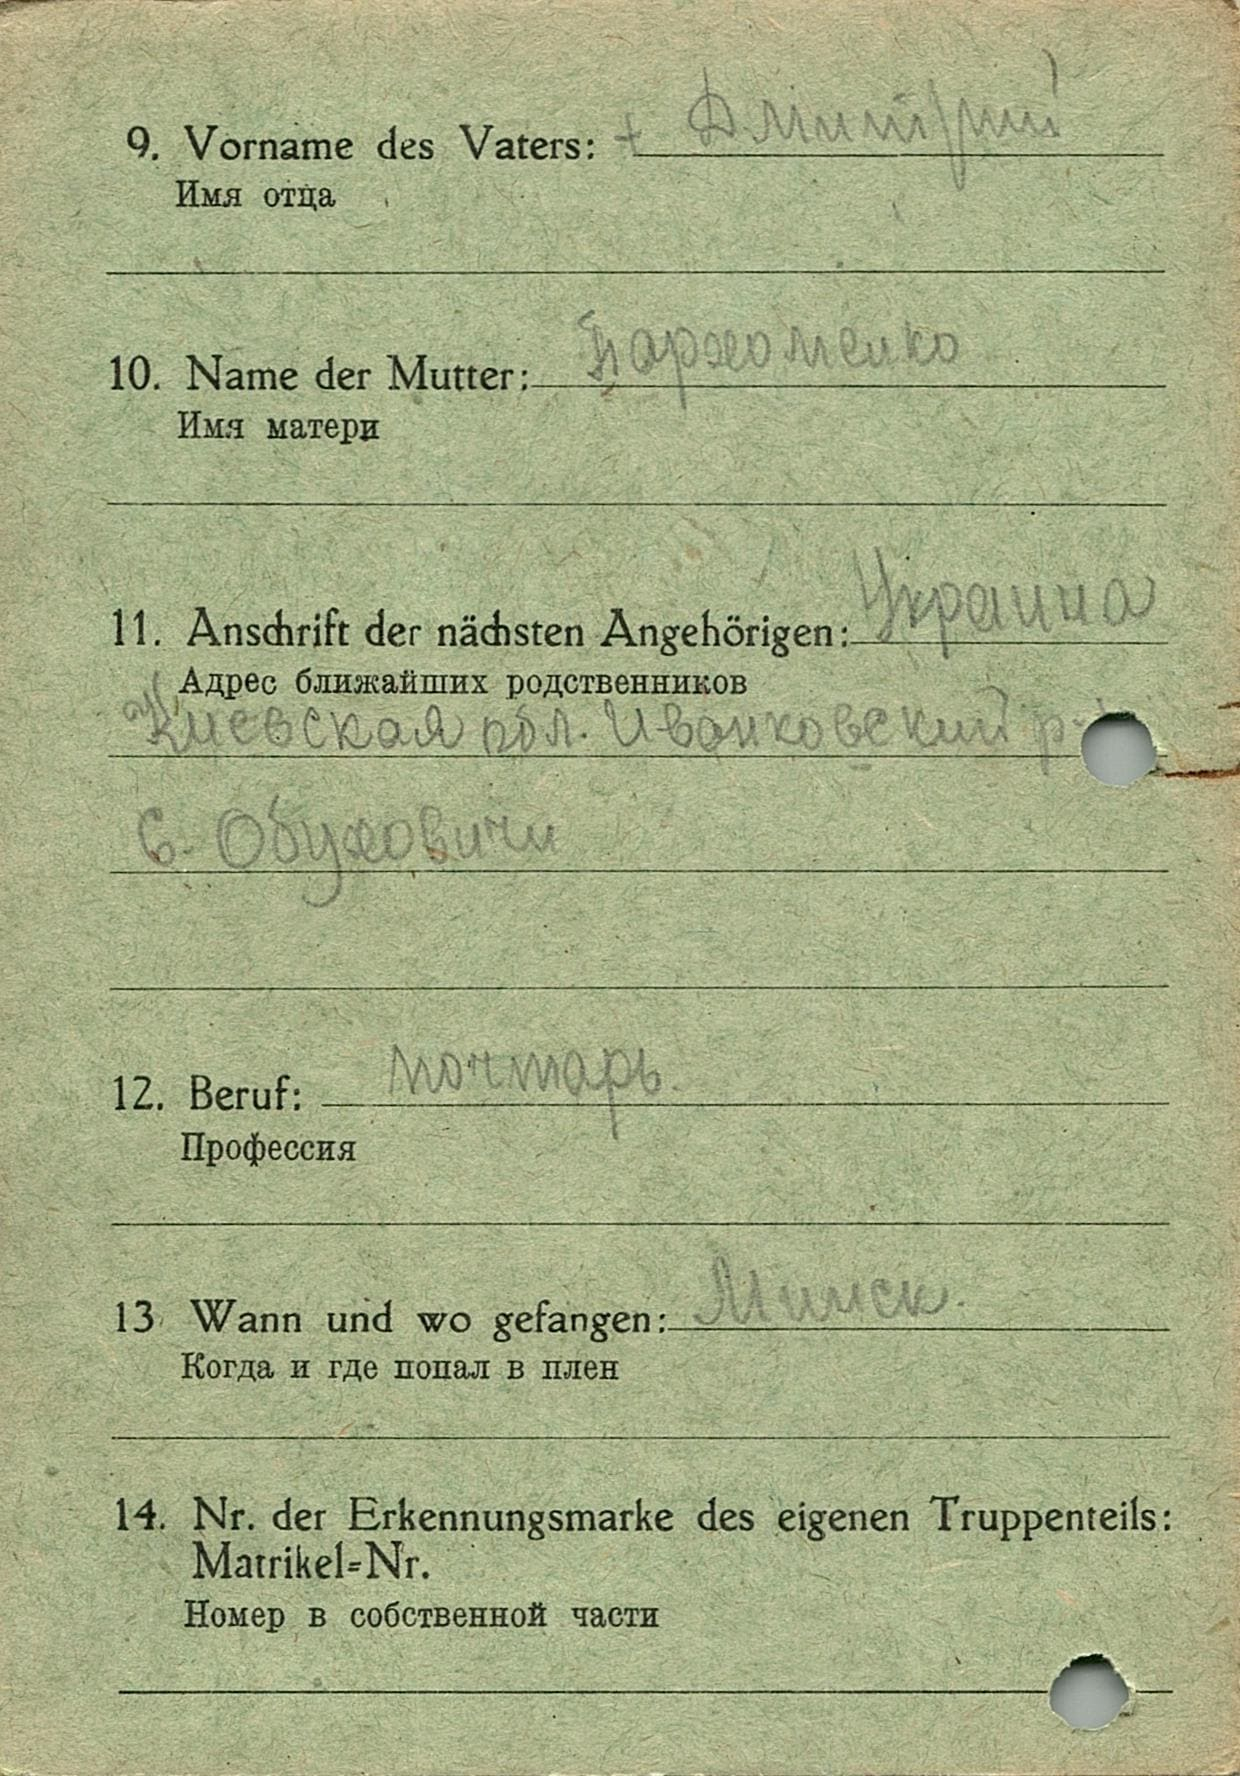 9. Vorname des Vaters: + Дмитрий
Имя отца
10. Name der Mutter: Пархоменко
Имя матери
11. Anschrift der nächsten Angehörigen: Украина
Адрес ближайших родственников
Киевская обл. Иванковский р-
с. Обуховичи
12. Beruf: почтарь.
Профессия
13 Wann und wo gefangen: Минск.
Когда и где попал в плен
14. Nr. der Erkennungsmarke des eigenen Truppenteils:
Matrikel=Nr.
Номер в собственной части